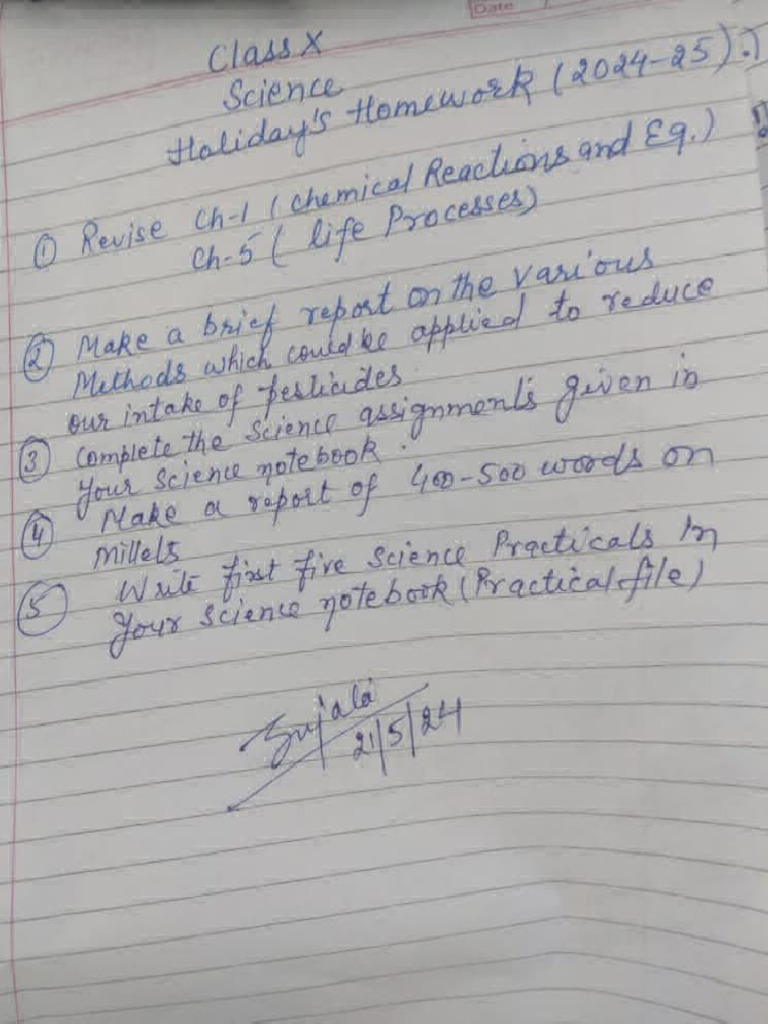 Date
Class X
Science
Haliday's Homework (2024-25).)
① Revise Ch-1 (Chemical Reactions and Eq.)
Ch-5 ( life Processes)
② Make a brief report on the various
Methods which could be applied to reduce
our intake of pesticides.
③ Complete the Science assignments given in
your Science notebook.
④ Make a report of 400-500 words on
Millets
⑤ Write first five Science Practicals In
your Science notebook (Practical-file)
Sujala
21/5/24